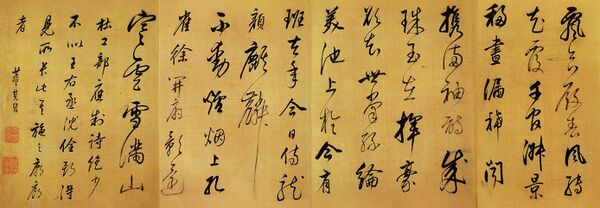 飄合殿春風轉
花覆千官淑景
移晝漏稀聞
携滿袖詩成
珠玉在揮毫
欲知世掌絲綸
美池上於今有
班去年今日侍龍
顏麒麟
不動爐烟上孔
雀徐開扇影還
寒雲雪滿山
杜工部應制詩絶少
不似王右丞沈佺期得
見所長此其
者
董其昌